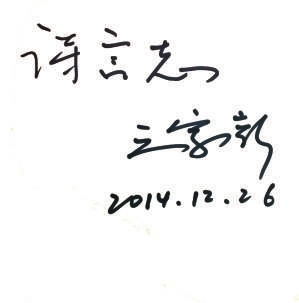 诗言志
王家新
2014.12.26